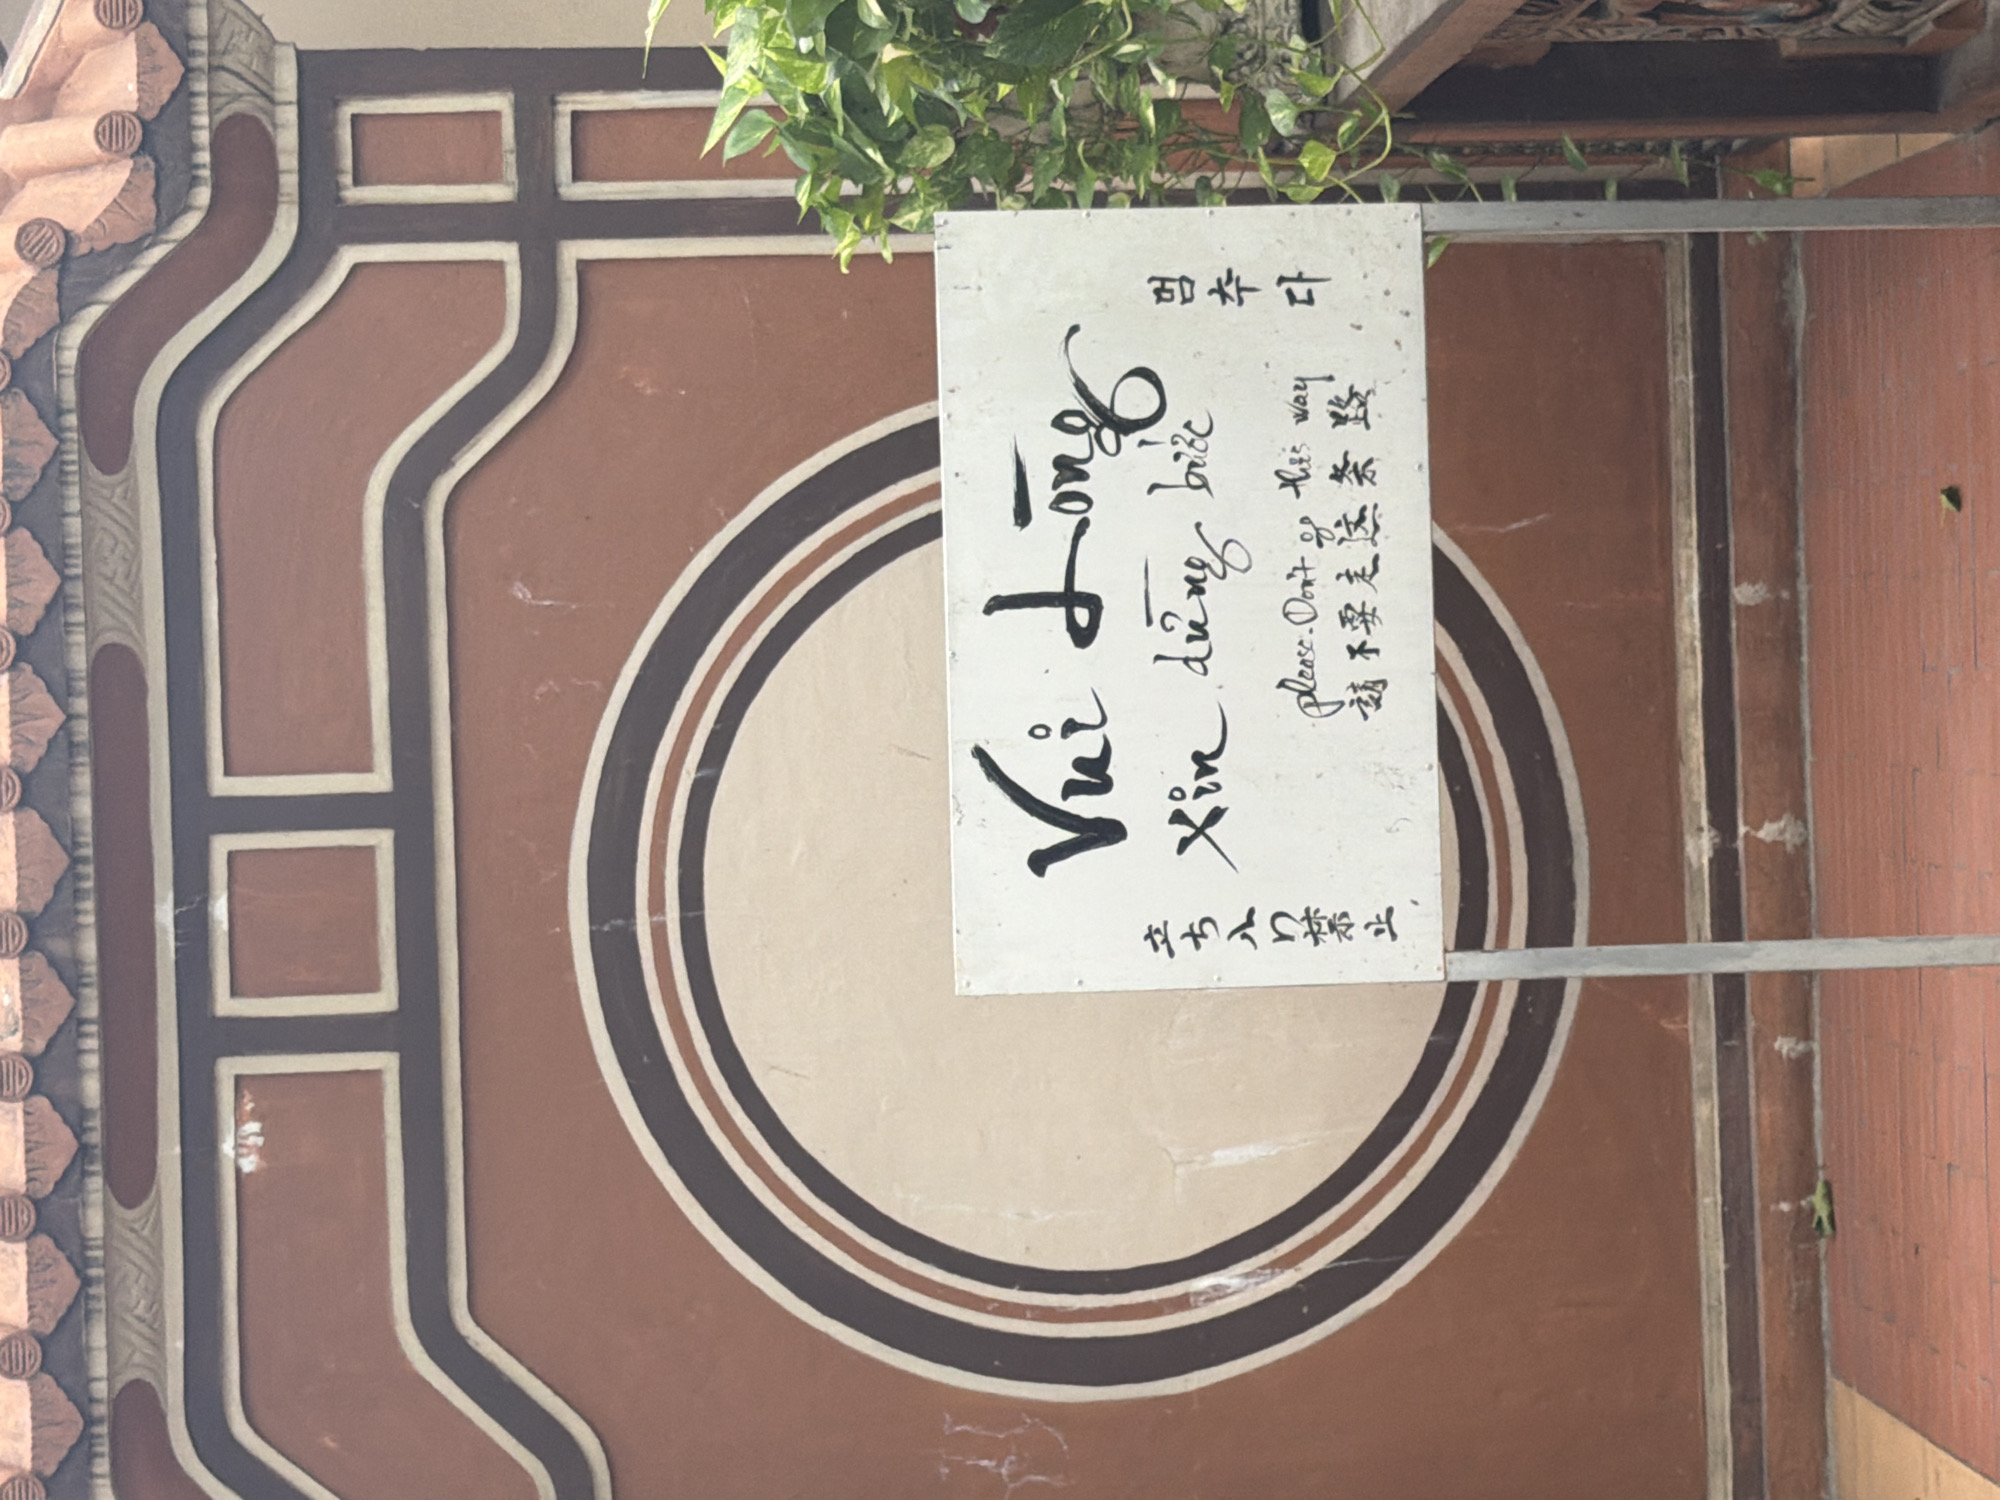 Vui lòng
Xin dừng bước
Please. Don't go this way
請不要走这条路
立ち入り禁止
멈추다